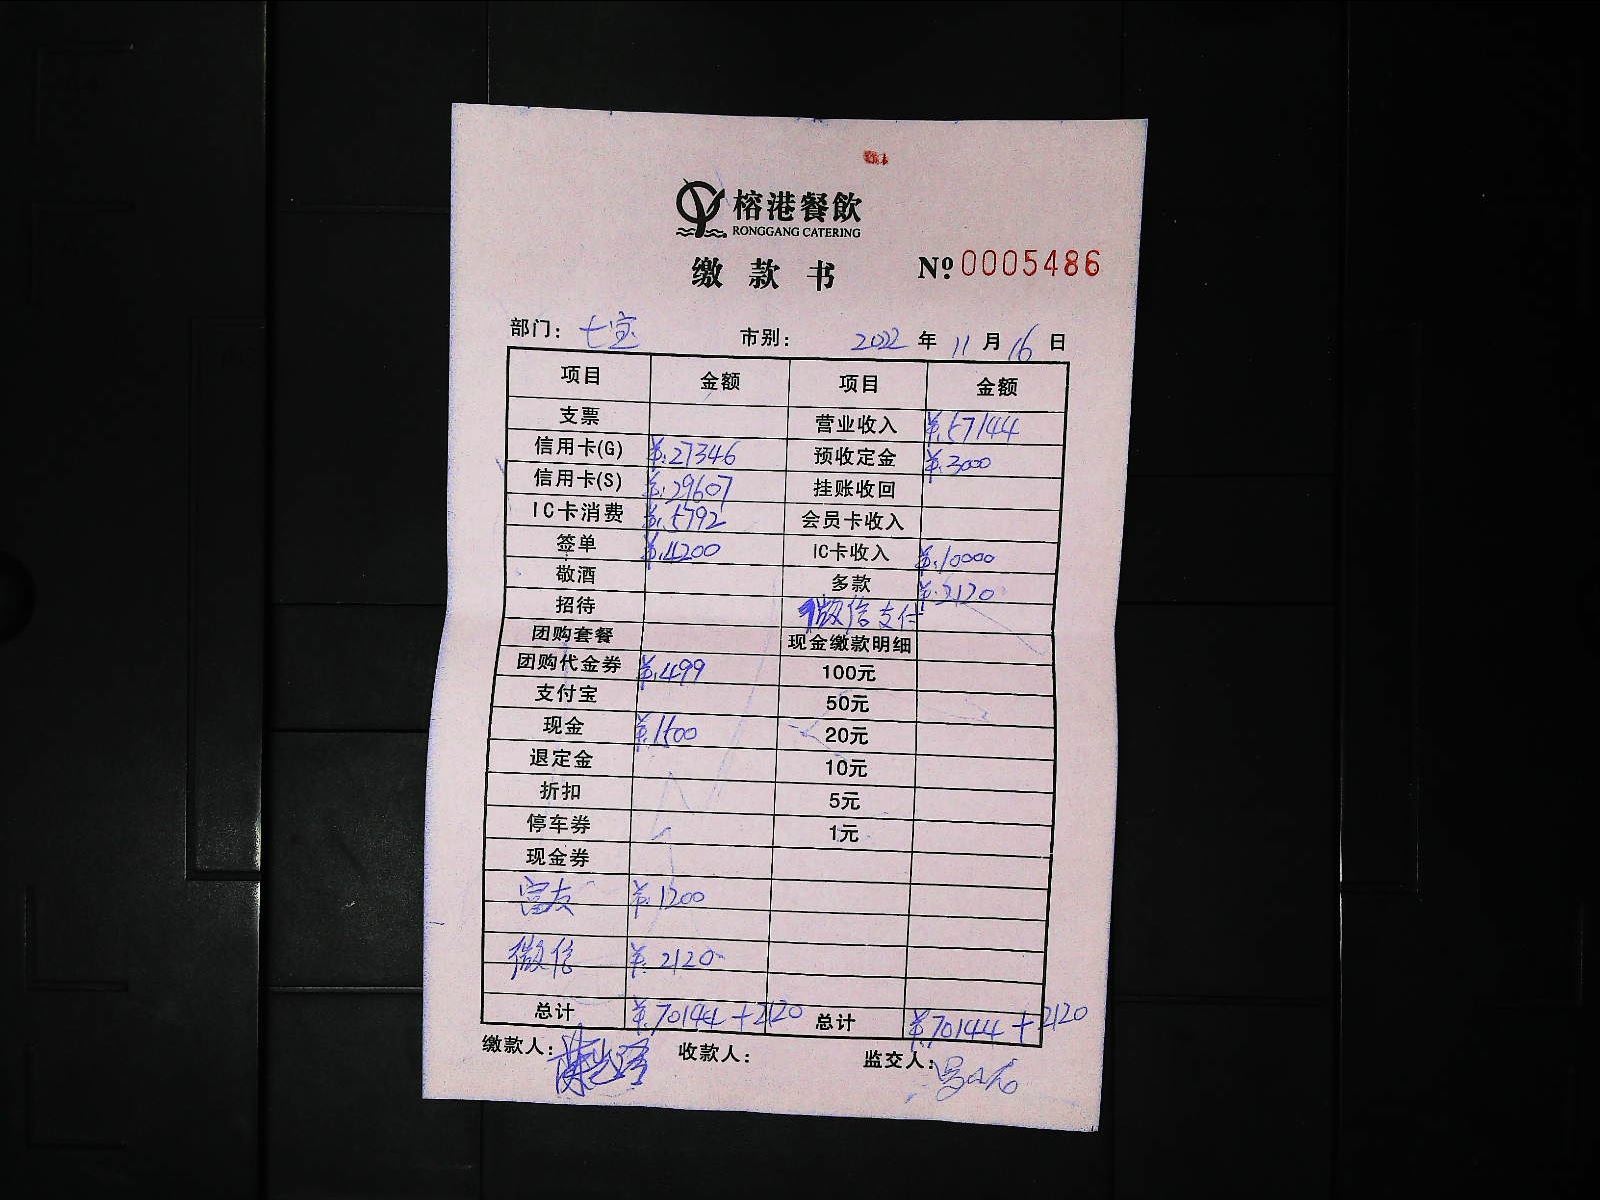 榕港餐飲
RONGGANG CATERING
缴款书 № 0005486
部门: 七宝 市别: 2022 年 11 月 16 日
项目 金额 项目 金额
支票 营业收入 ¥.57144
信用卡(G) ¥.27346 预收定金 ¥.3000
信用卡(S) ¥.29607 挂账收回
IC卡消费 ¥.5792 会员卡收入
签单 ¥.4200 IC卡收入 ¥.10000
敬酒 多款 ¥.2120
招待 微信支付
团购套餐 现金缴款明细
团购代金券 ¥.499 100元
支付宝 50元
现金 ¥.1500 20元
退定金 10元
折扣 5元
停车券 1元
现金券
富友 ¥.1200
微信 ¥.2120
总计 ¥.70144+2120 总计 ¥.70144+2120
缴款人: 收款人: 监交人: